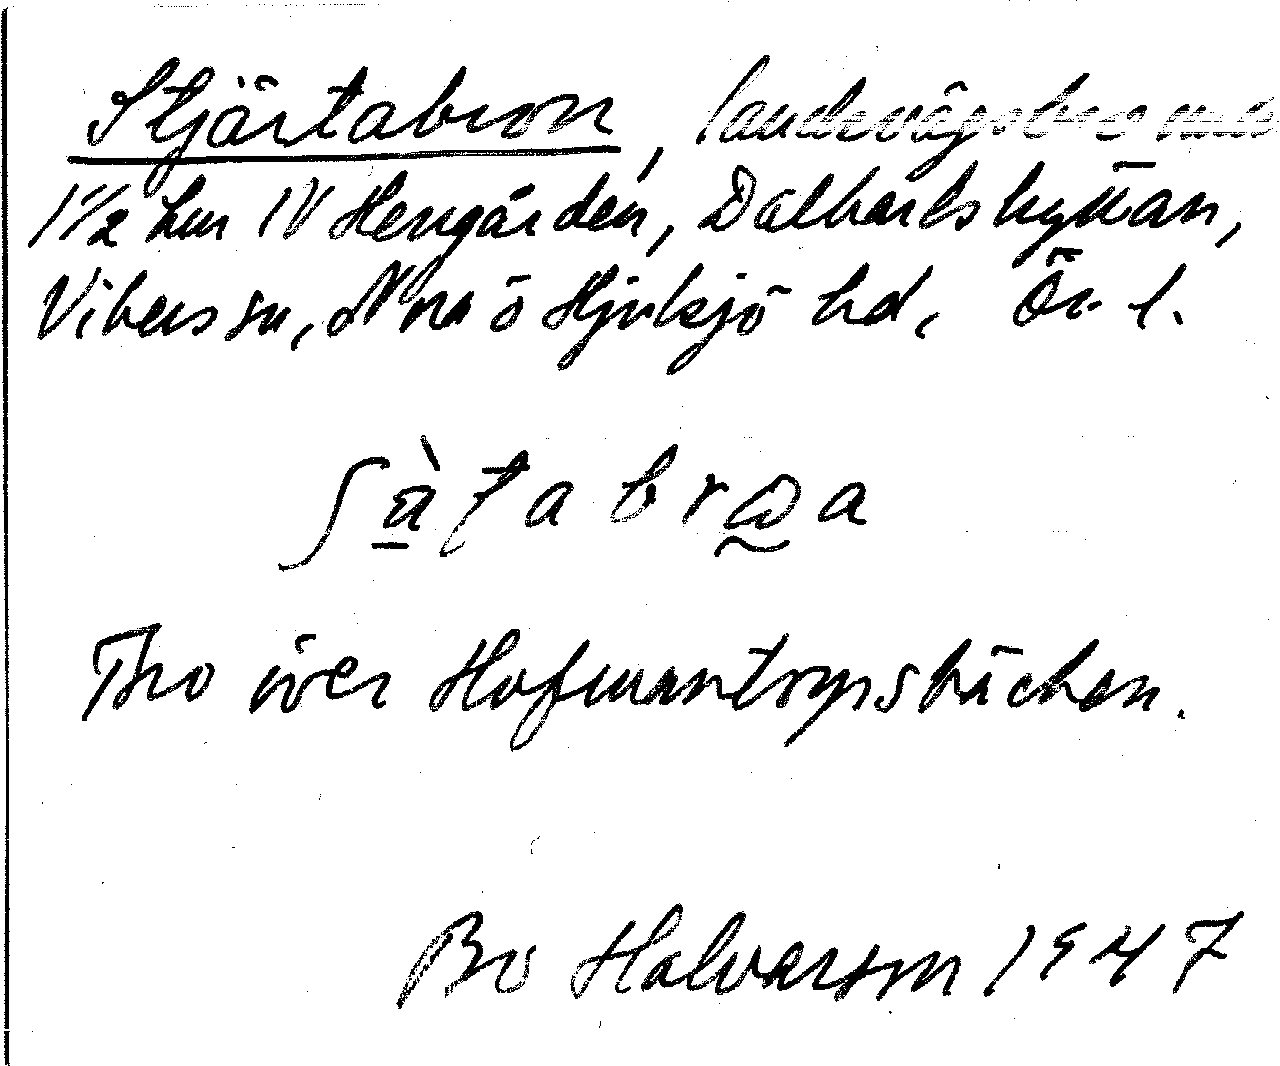 Stjärtabron, landsvägsbro
1 1/2 km NV Hengården, Dalkarlshyttan,
Vibers sn, Nora o Hjulsjö hd, Ör. l.
ʃàtabrωa
Bro över Hofmantorpsbäcken.
Bo Halvarson 1947